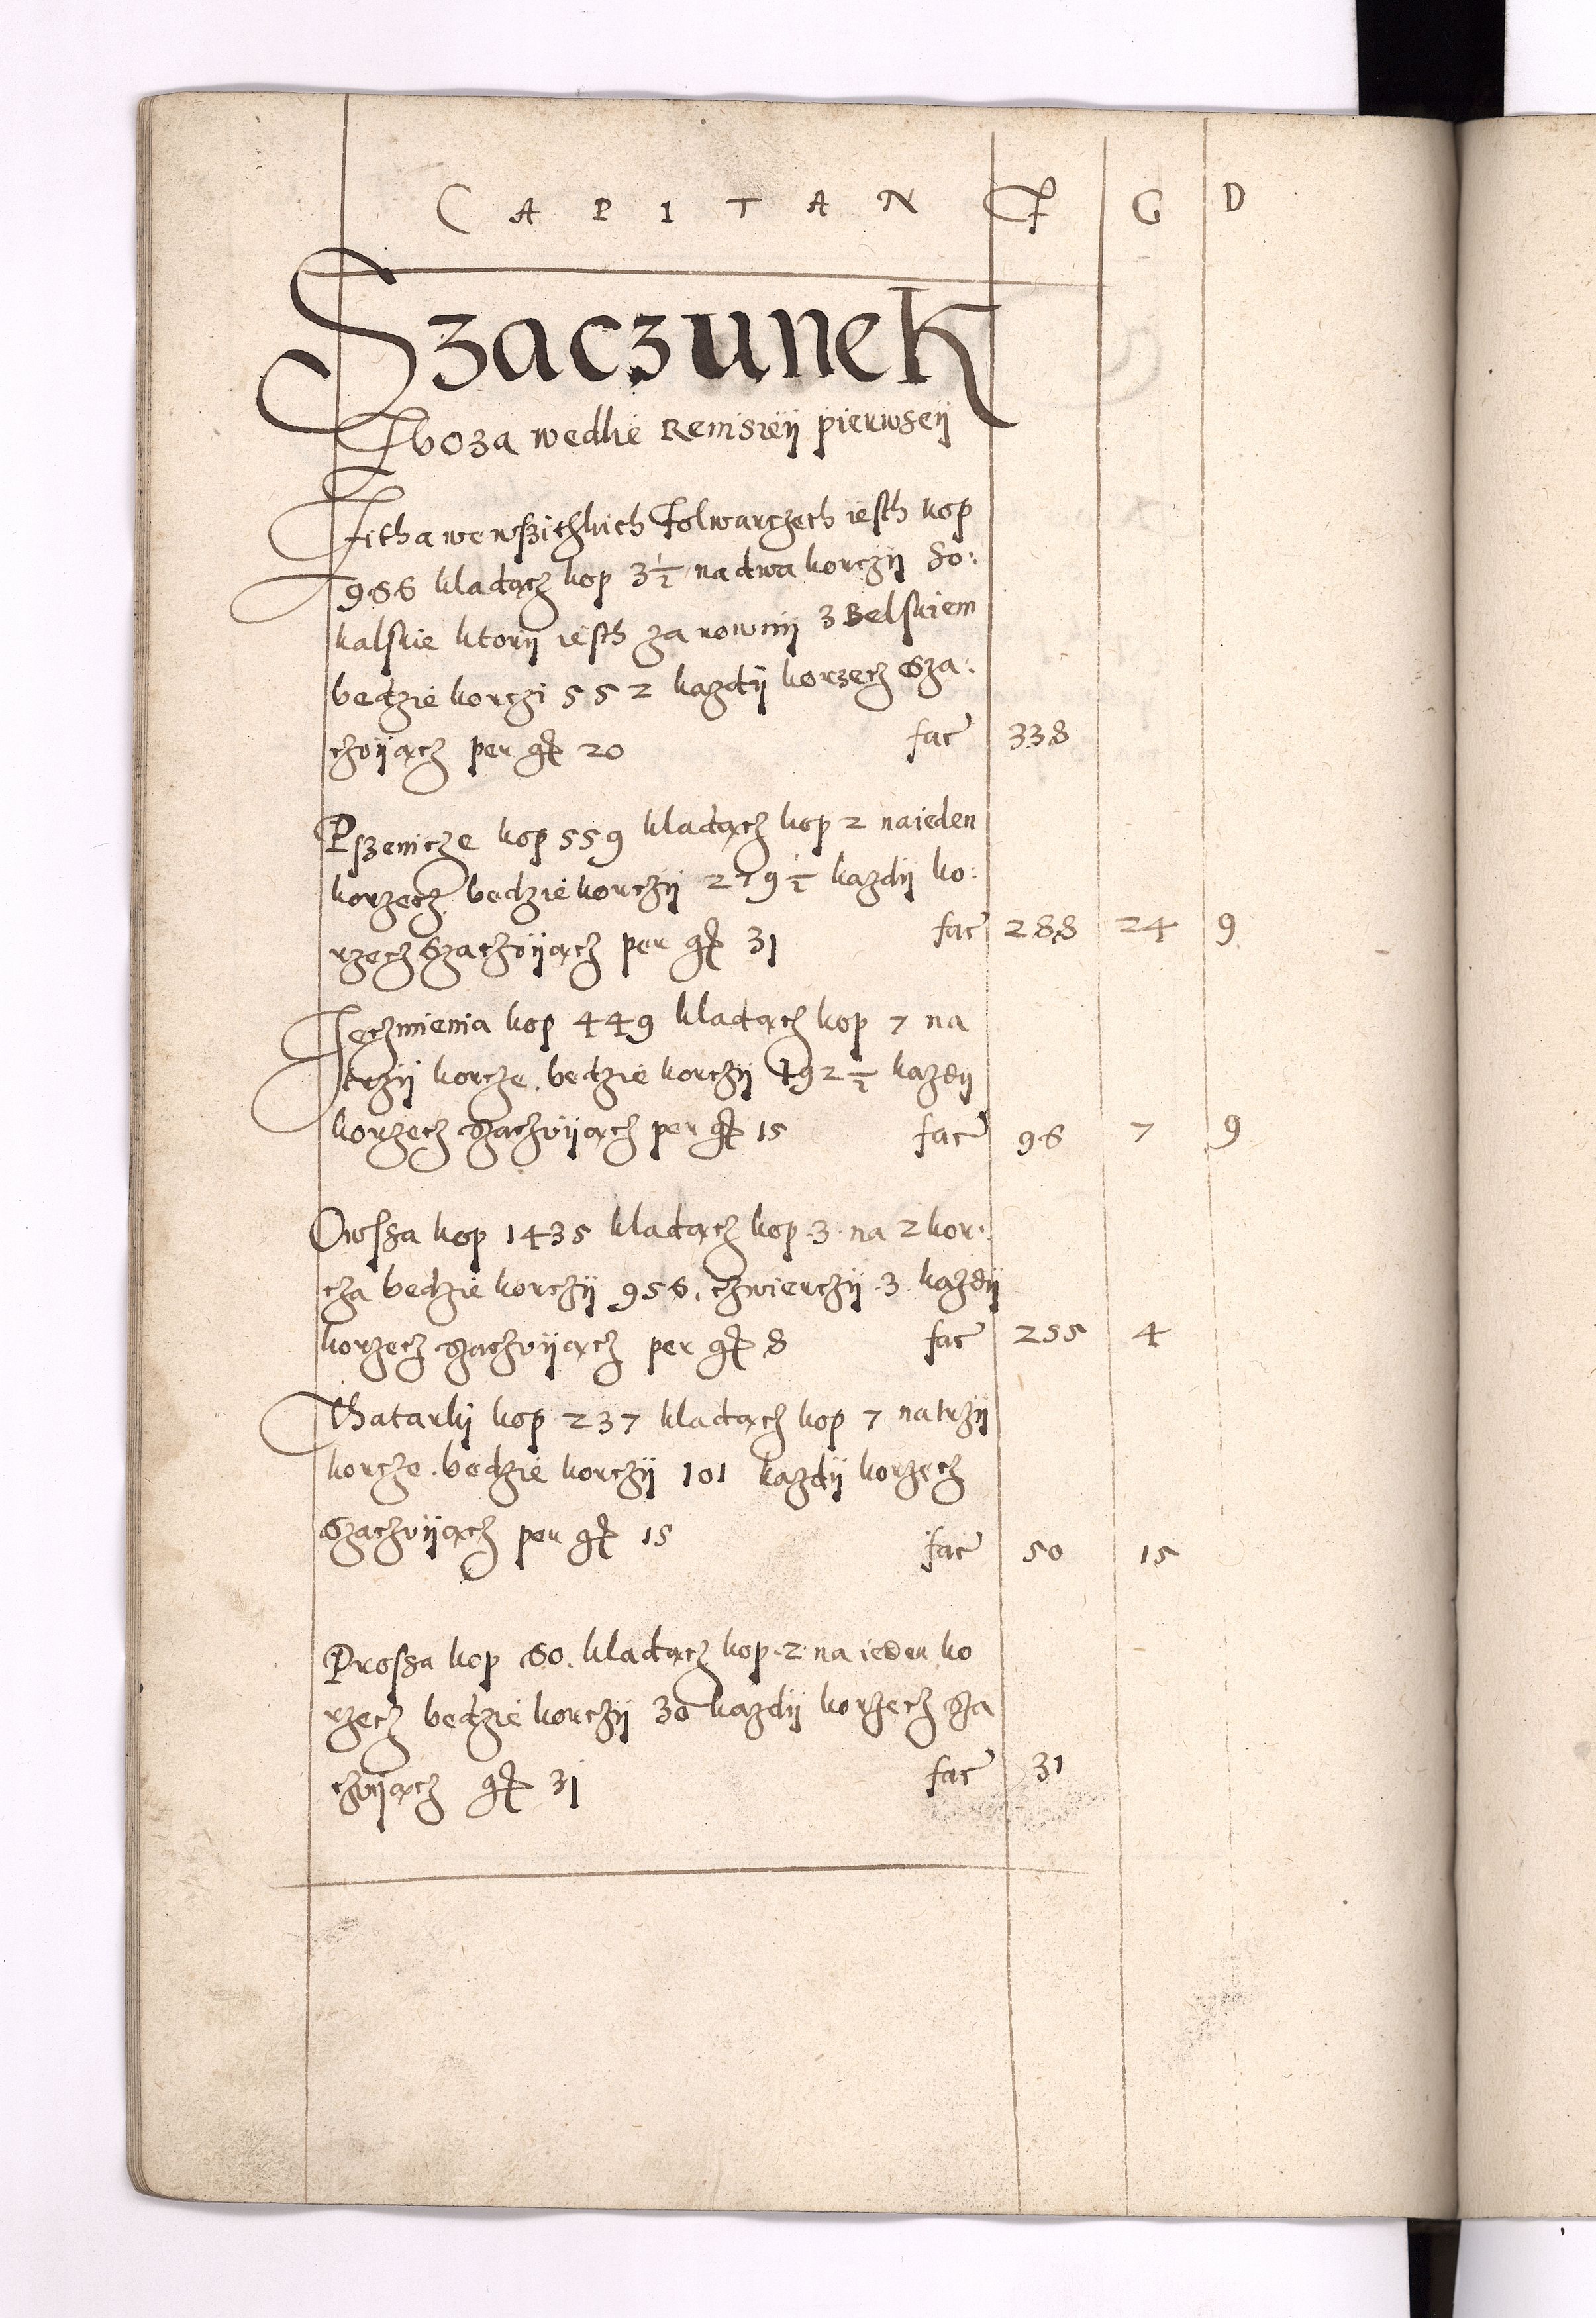 C A P I T A N F G D
Szaczunek
Zboza wedlie Remisieÿ pierwseÿ
Zitha we wszitzkich Folwarczech iesth kop
966 kladącz kop 3½ na dwa korczÿ So:
kalskie ktorÿ iesth za rownÿ z Belskiem
bedzie korczi 552 kazdÿ korzecz Sza:
czvÿącz per gł 20 fac 338
Pszenicze kop 559 kladącz kop 2 na ieden
korzecz bedzie korczÿ 279½ kazdÿ ko:
rzecz Szaczvÿącz per gł 31 fac 288 24 9
Jeczmienia kop 449 kladącz kop 7 na
trzÿ korcze. bedzie korczÿ 192½ kazdÿ
korzecz szaczvÿącz per gł 15 fac 96 7 9
Owssa kop 1435 kladącz kop 3 na 2 kor:
cza bedzie korczÿ 956. czwierczÿ 3 kazdÿ
korzecz szaczvÿącz per gł 8 fac 255 4
Thatarkj kop 237 kladącz kop 7 na trzÿ
korcze. bedzie korczÿ 101 kazdÿ korzecz
Szaczvÿącz per gł 15 fac 50 15
Prossa kop 60. kladącz kop 2 na ieden ko
rzecz bedzie korczÿ 30 kazdÿ korzecz sza
czvÿącz gł 31 fac 31